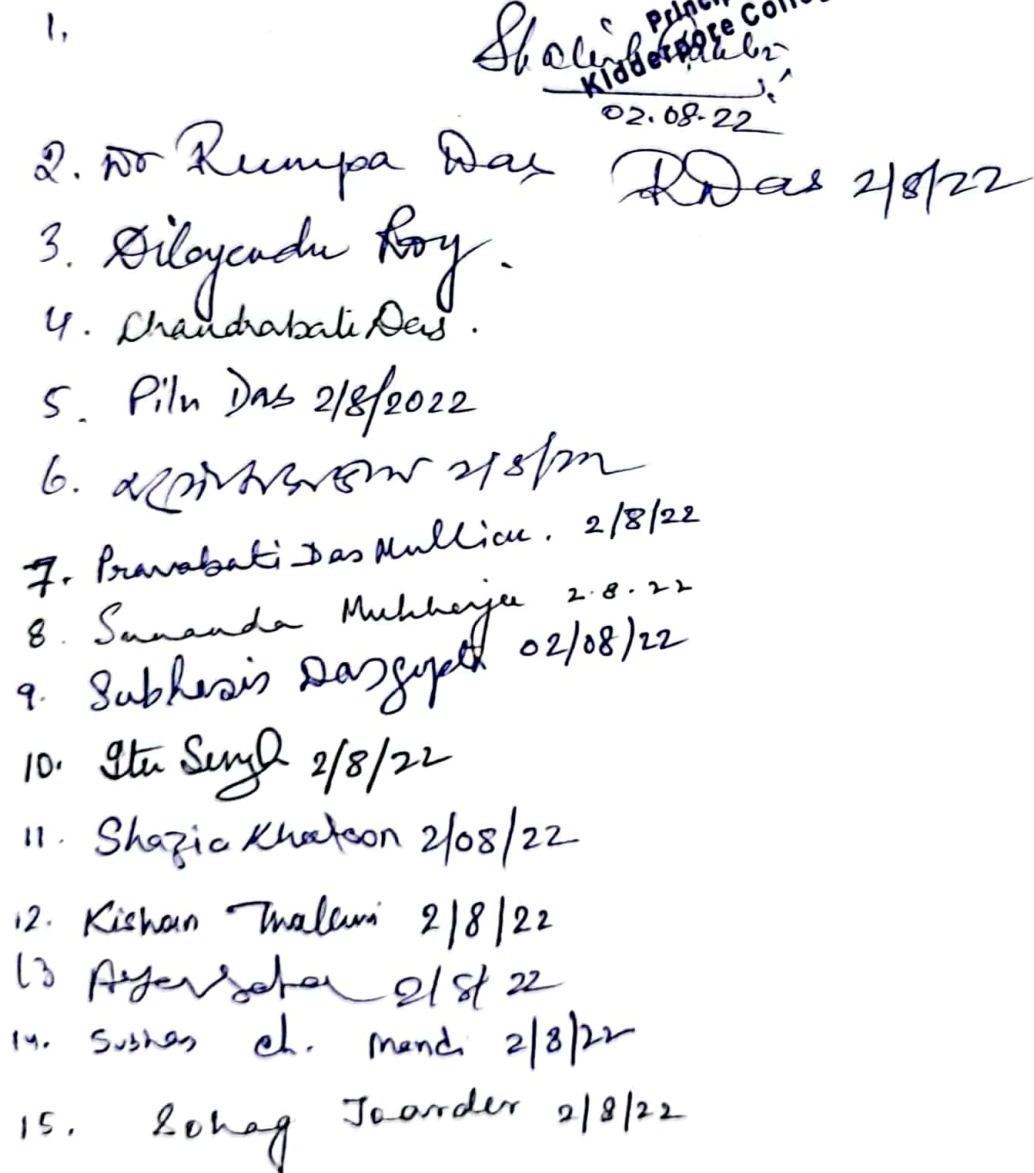 1.
Princi
Kidderpore Coll
02.08.22
2. Dr Rumpa Das RDas 2/8/22
3. Dilayendu Roy.
4. Chandrabali Das.
5. Pilu Das 2/8/2022
6. 2/8/22
7. Pravabati Das Mullick. 2/8/22
8. Sunanda Mukherjee 2.8.22
9. Subhasis Dasgupta 02/08/22
10. Itu Singh 2/8/22
11. Shazia Khatoon 2/08/22
12. Kishan 2/8/22
13 2/8/22
14. Subhas ch. Mandi 2/8/22
15. Sohag Joarder 2/8/22